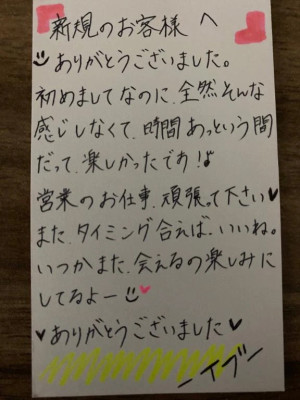 新規のお客様へ
ありがとうございました。
初めましてなのに、全然そんな
感じしなくて、時間あっという間
だって、楽しかったです!
営業のお仕事、頑張って下さい♥
また、タイミング合えば、いいね。
いつかまた、会えるの楽しみに
してるよー
♥ありがとうございました♥
ーイブー